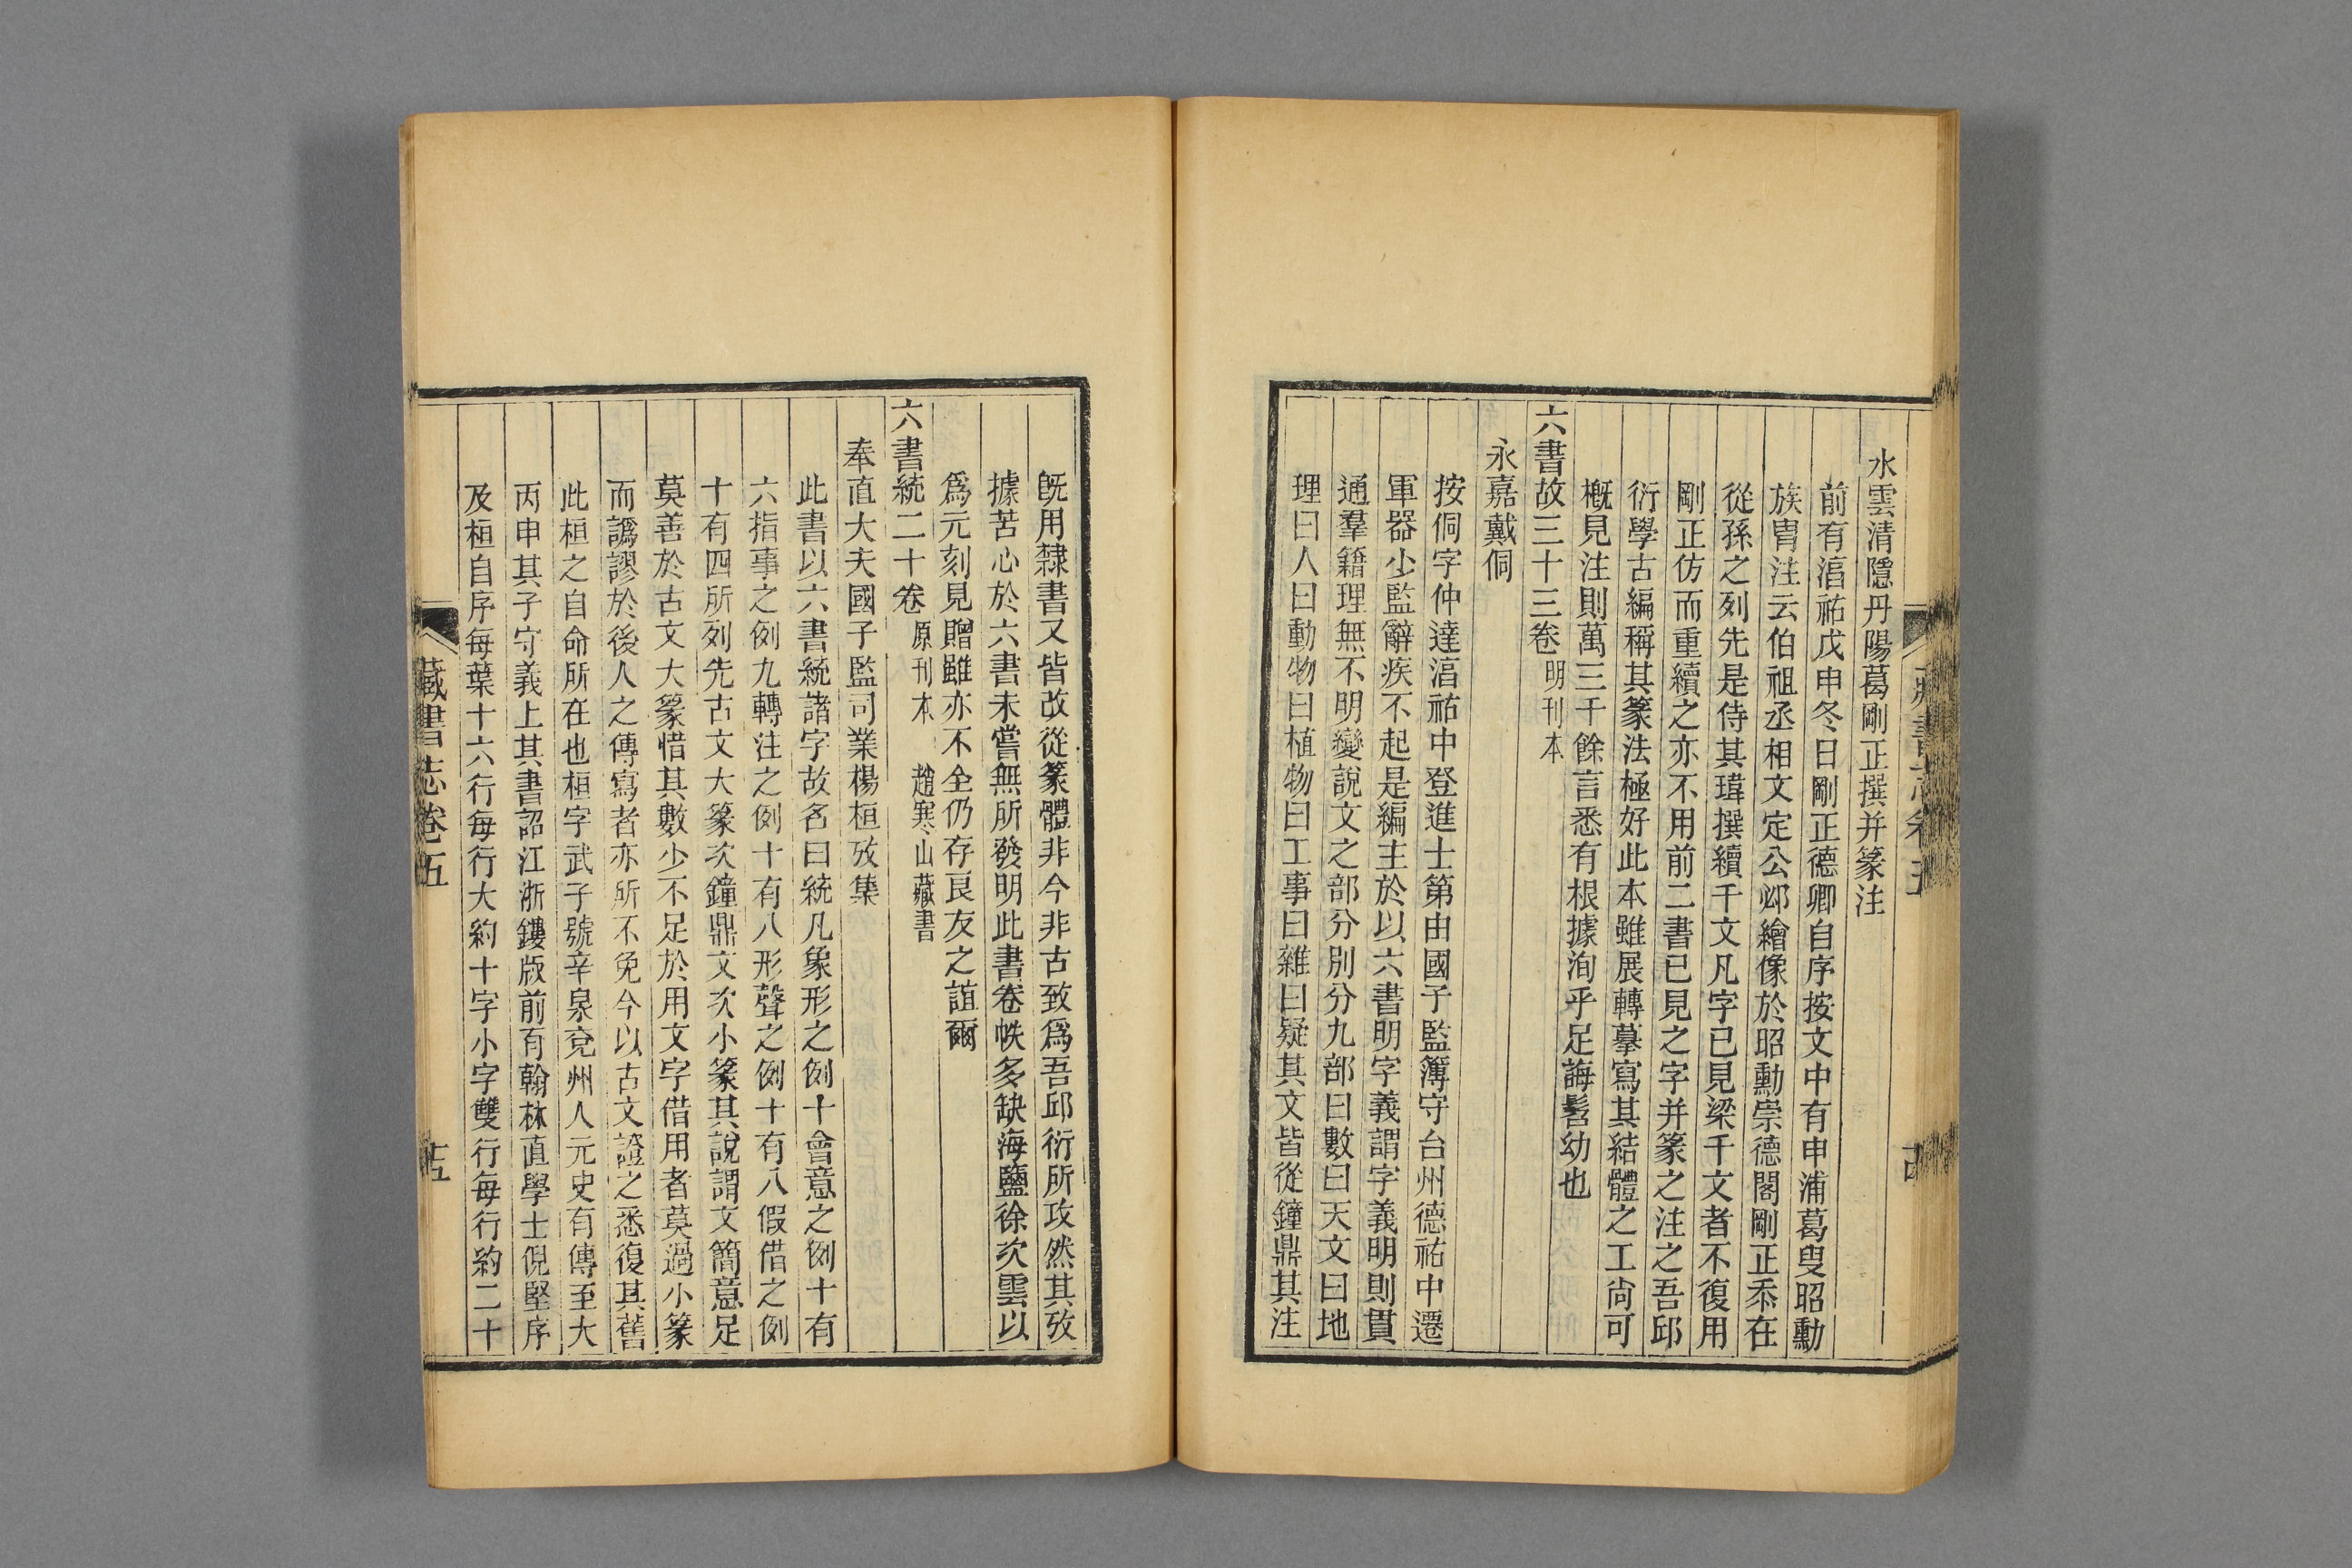 水雲清隱丹陽葛剛正撰并篆注
前有湻祐戊申冬日剛正德卿自序按文中有申浦葛叟昭勳
族胄注云伯祖丞相文定公邲繪像於昭勳崇德閣剛正忝在
從孫之列先是侍其瑋撰續千文凡字已見梁千文者不復用
剛正仿而重續之亦不用前二書已見之字并篆之注之吾邱
衍學古編稱其篆法極好此本雖展轉摹寫其結體之工尙可
槪見注則萬三千餘言悉有根據洵乎足誨髫幼也
六書故三十三卷 明刊本
永嘉戴侗
按侗字仲達湻祐中登進士第由國子監簿守台州德祐中遷
軍器少監辭疾不起是編主於以六書明字義謂字義明則貫
通羣籍理無不明變說文之部分別分九部曰數曰天文曰地
理曰人曰動物曰植物曰工事曰雜曰疑其文皆從鐘鼎其注
旣用隸書又皆改從篆體非今非古致爲吾邱衍所攻然其攷
據苦心於六書未嘗無所發明此書卷帙多缺海鹽徐次雲以
爲元刻見贈雖亦不全仍存良友之誼爾
六書統二十卷 原刊本 趙寒山藏書
奉直大夫國子監司業楊桓攷集
此書以六書統諸字故名曰統凡象形之例十會意之例十有
六指事之例九轉注之例十有八形聲之例十有八假借之例
十有四所列先古文大篆次鐘鼎文次小篆其說謂文簡意足
莫善於古文大篆惜其數少不足於用文字借用者莫過小篆
而譌謬於後人之傳寫者亦所不免今以古文證之悉復其舊
此桓之自命所在也桓字武子號辛泉兗州人元史有傳至大
丙申其子守義上其書詔江浙鏤版前有翰林直學士倪堅序
及桓自序每葉十六行每行大約十字小字雙行每行約二十
藏書志卷五
十五